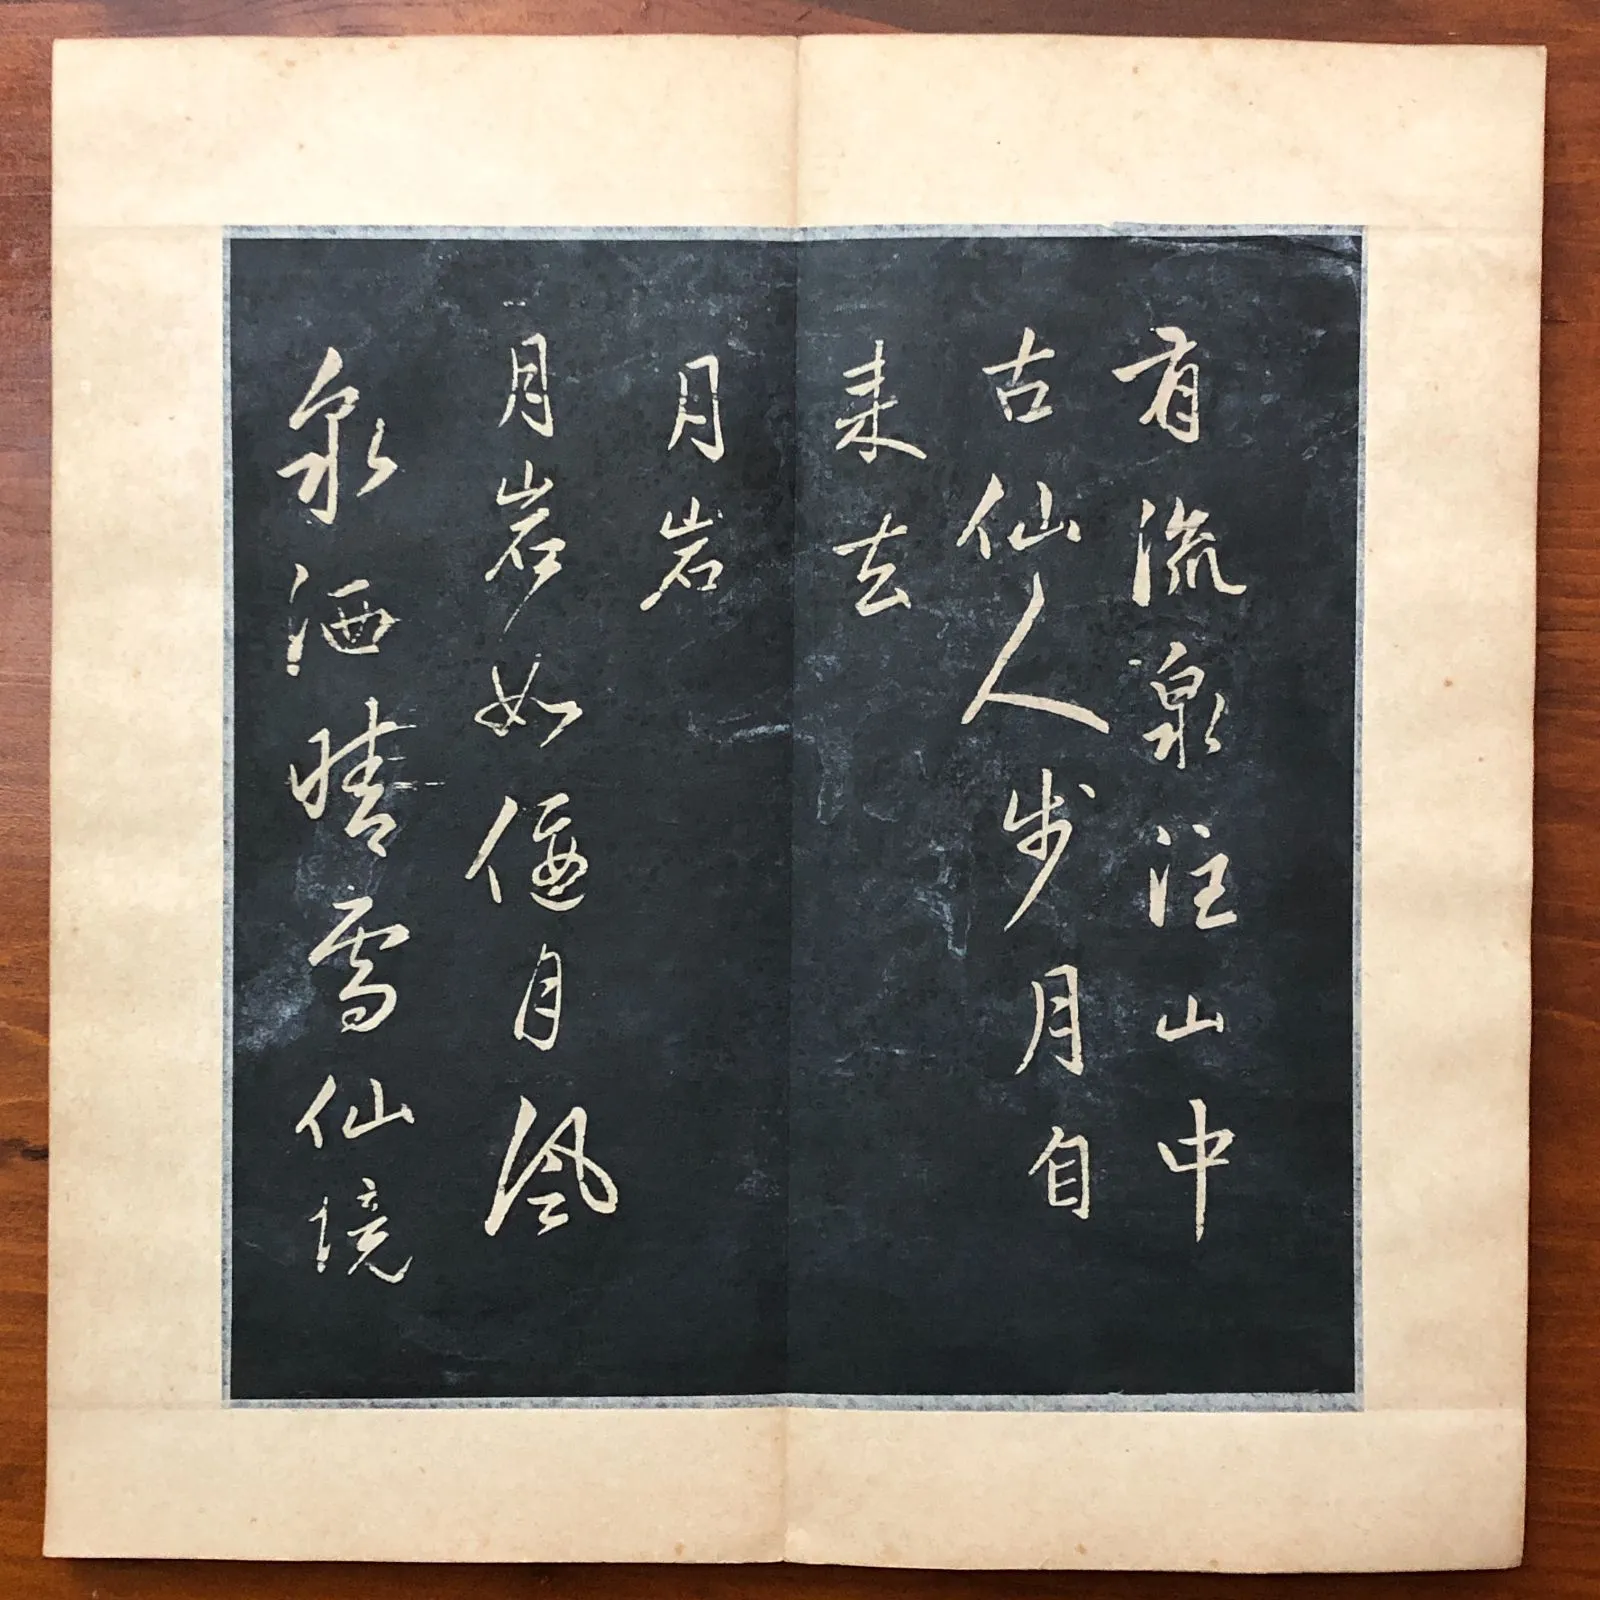 有流泉注山中
古仙人步月自
来去
月岩
月岩如偃月風
泉洒晴雪仙境